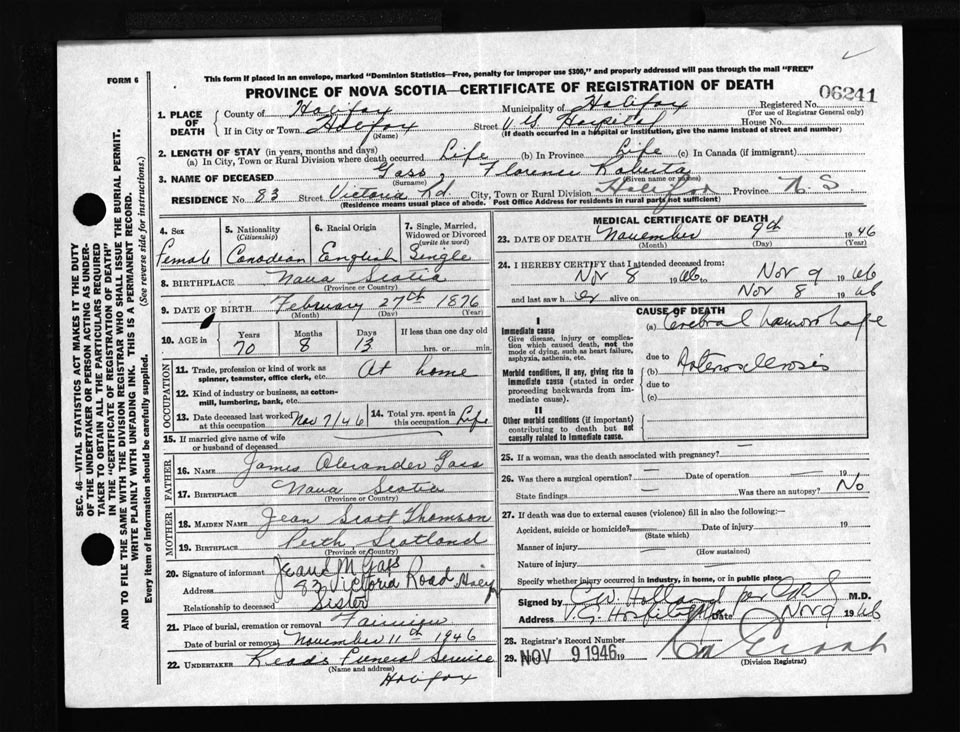 FORM 6
This form if placed in an envelope, marked "Dominion Statistics—Free, penalty for improper use $300," and properly addressed will pass through the mail "FREE"
PROVINCE OF NOVA SCOTIA—CERTIFICATE OF REGISTRATION OF DEATH
06241
1. PLACE OF DEATH
County of Halifax Municipality of Halifax Registered No.
(For use of Registrar General only)
If in City or Town Halifax Street V.G. Hospital House No.
(Name) (If death occurred in a hospital or institution, give the name instead of street and number)
2. LENGTH OF STAY (in years, months and days)
(a) In City, Town or Rural Division where death occurred Life (b) In Province Life (c) In Canada (if immigrant)
3. NAME OF DECEASED Gass, Florence Roberta
(Surname) (Given name or names)
RESIDENCE No. 83 Street Victoria Rd. City, Town or Rural Division Halifax Province N.S
(Residence means usual place of abode. Post Office Address for residents in rural parts not sufficient)
4. Sex
Female
5. Nationality
(Citizenship)
Canadian
6. Racial Origin
English
7. Single, Married, Widowed or Divorced
(write the word)
Single
8. BIRTHPLACE Nova Scotia
(Province or Country)
9. DATE OF BIRTH February 27th 1876
(Month) (Day) (Year)
10. AGE in
Years Months Days If less than one day old
70 8 13 hrs. or min.
OCCUPATION
11. Trade, profession or kind of work as spinner, teamster, office clerk, etc. At home
12. Kind of industry or business, as cotton-mill, lumbering, bank, etc.
13. Date deceased last worked at this occupation Nov 7/46
14. Total yrs. spent in this occupation Life
15. If married give name of wife or husband of deceased —
FATHER
16. NAME James Alexander Gass
17. BIRTHPLACE Nova Scotia
(Province or Country)
MOTHER
18. MAIDEN NAME Jean Scott Thomson
19. BIRTHPLACE Perth, Scotland
(Province or Country)
20. Signature of informant M Gass
Address 83 Victoria Road Halifax
Relationship to deceased Sister
21. Place of burial, cremation or removal Fairview
Date of burial or removal November 11th 1946
22. UNDERTAKER Funeral Service
(Name and address)
Halifax
MEDICAL CERTIFICATE OF DEATH
23. DATE OF DEATH November 9th 1946
(Month) (Day) (Year)
24. I HEREBY CERTIFY that I attended deceased from:
Nov 8 1946 to Nov 9 1946
and last saw her alive on Nov 8 1946
CAUSE OF DEATH
I
Immediate cause
Give disease, injury or complication which caused death, not the mode of dying, such as heart failure, asphyxia, asthenia, etc.
(a) Cerebral haemorrhage
due to
Morbid conditions, if any, giving rise to immediate cause (stated in order proceeding backwards from immediate cause).
(b) Arteriosclerosis
due to
(c)
II
Other morbid conditions (if important) contributing to death but not causally related to immediate cause.
25. If a woman, was the death associated with pregnancy? —
26. Was there a surgical operation? — Date of operation — 19
State findings — Was there an autopsy? No
27. If death was due to external causes (violence) fill in also the following:—
Accident, suicide or homicide? — Date of injury 19
(State which)
Manner of injury —
(How sustained)
Nature of injury —
Specify whether injury occurred in industry, in home, or in public place
Signed by C.W. Holland per M.D.
Address V.G. Hospital Date Nov 9 1946
28. Registrar's Record Number
29. NOV 9 1946 19
(Division Registrar)
SEC. 46—VITAL STATISTICS ACT MAKES IT THE DUTY
OF THE UNDERTAKER OR PERSON ACTING AS UNDER-
TAKER TO OBTAIN ALL THE PARTICULARS REQUIRED
IN THE "CERTIFICATE OF REGISTRATION OF DEATH"
AND TO FILE THE SAME WITH THE DIVISION REGISTRAR WHO SHALL ISSUE THE BURIAL PERMIT.
WRITE PLAINLY WITH UNFADING INK. THIS IS A PERMANENT RECORD.
Every item of information should be carefully supplied. (See reverse side for instructions.)